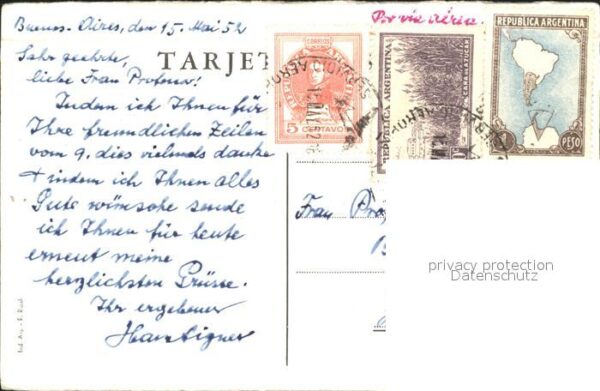 Buenos-Aires, den 15. Mai 52
Por vía aérea.
Sehr geehrte,
liebe Frau Professor!
TARJET
Indem ich Ihnen für
Ihre freundlichen Zeilen
vom 9. dies vielmals danke
+ indem ich Ihnen alles
Gute wünsche sende
ich Ihnen für heute
erneut meine
herzlichsten Grüsse.
Ihr ergebener
CORREOS
5
CENTAVOS
REPUBLICA ARGENTINA
REPUBLICA ARGENTINA
1 PESO
Frau
privacy protection
Datenschutz
Ind. Arg.